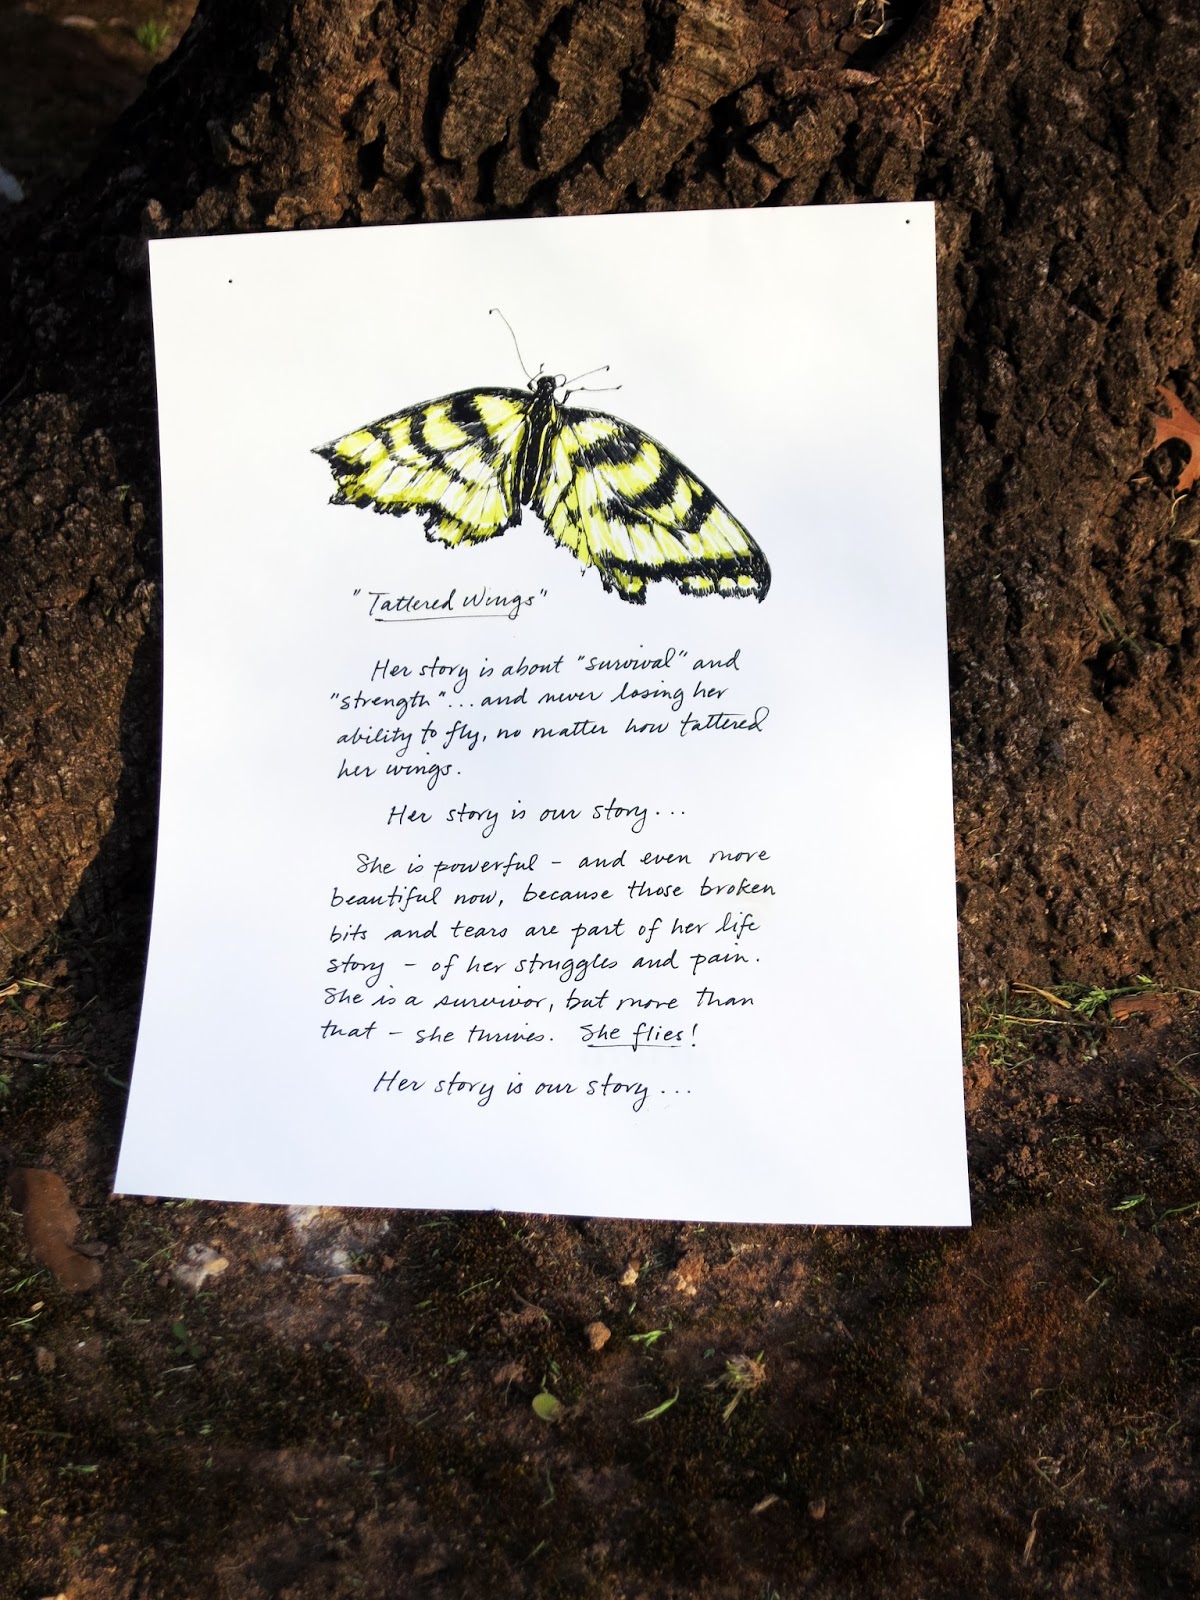 "Tattered Wings"
Her story is about "survival" and
"strength"... and never losing her
ability to fly, no matter how tattered
her wings.
Her story is our story...
She is powerful - and even more
beautiful now, because those broken
bits and tears are part of her life
story - of her struggles and pain.
She is a survivor, but more than
that - she thrives. She flies!
Her story is our story...